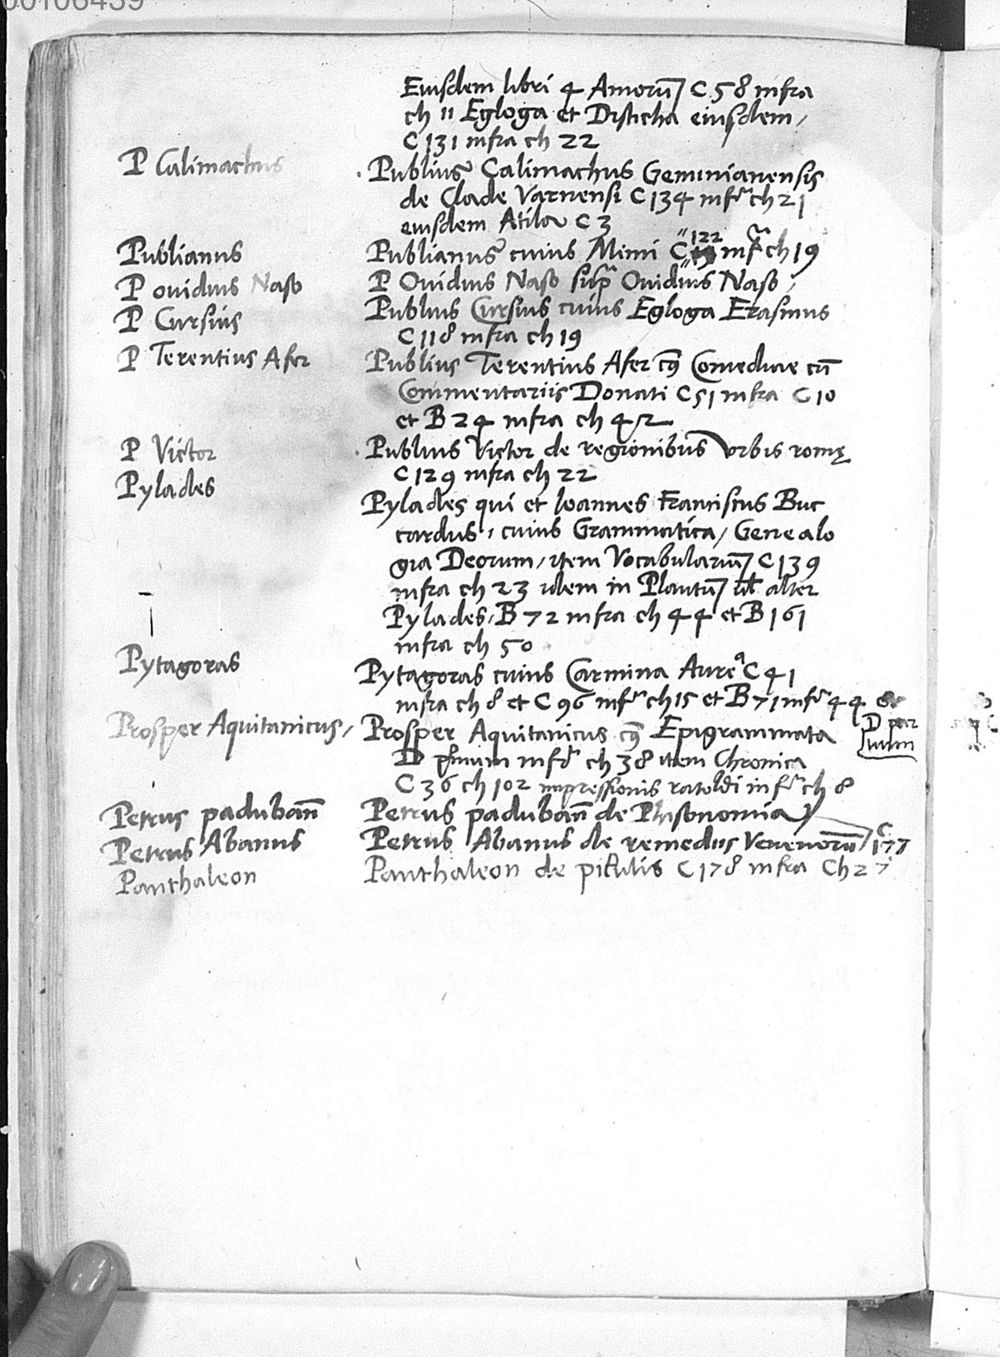 00106439
Eiusdem libri 4 Amorū C 58 infra
ch 11 Egloga et Disticha eiusdem,
C 131 infra ch 22
P Calimachus · Publius Calimachus Geminianensis
de Clade Varnensi C 134 infr ch 21
eiusdem Atila C 3
Publianus Publianus cuius Mimi C 122 infr ch 19
P ouidius Naso P Ouidius Naso supra Ouidius Naso,
P Cursius Publius Cursius cuius Egloga Erasmus
C 118 infra ch 19
P Terentius Afer Publius Terentius Afer cuius Comediae cū
Commentariis Donati C 51 infra C 10
et B 24 infra ch 42
P Victor · Publius Victor de regionibus Vrbis romę
C 129 infra ch 22
Pylades Pylades qui et Ioannes Franciscus Buc
cardus, cuius Grammatica, Genealo
gia Deorum, item Vocabulariū C 139
infra ch 23 idem in Plautū vel alter
Pylades, B 72 infra ch 44 et B 161
infra ch 50
Pytagoras Pytagoras cuius Carmina Aurea C 41
infra ch 8 et C 96 infr ch 15 et B 71 infr 44 &
Prosper Aquitanicus, Prosper Aquitanicus cuius Epigrammata D par
uum
D primum infr ch 38 item Chronica
C 36 ch 102 impressionis ratoldi infr ch 8
Petrus padubanū Petrus padubanū de Phisonomia
Petrus Abanus Petrus Abanus de remediis Venenorū C 177
Panthaleon Panthaleon de pillulis C 178 infra Ch 27